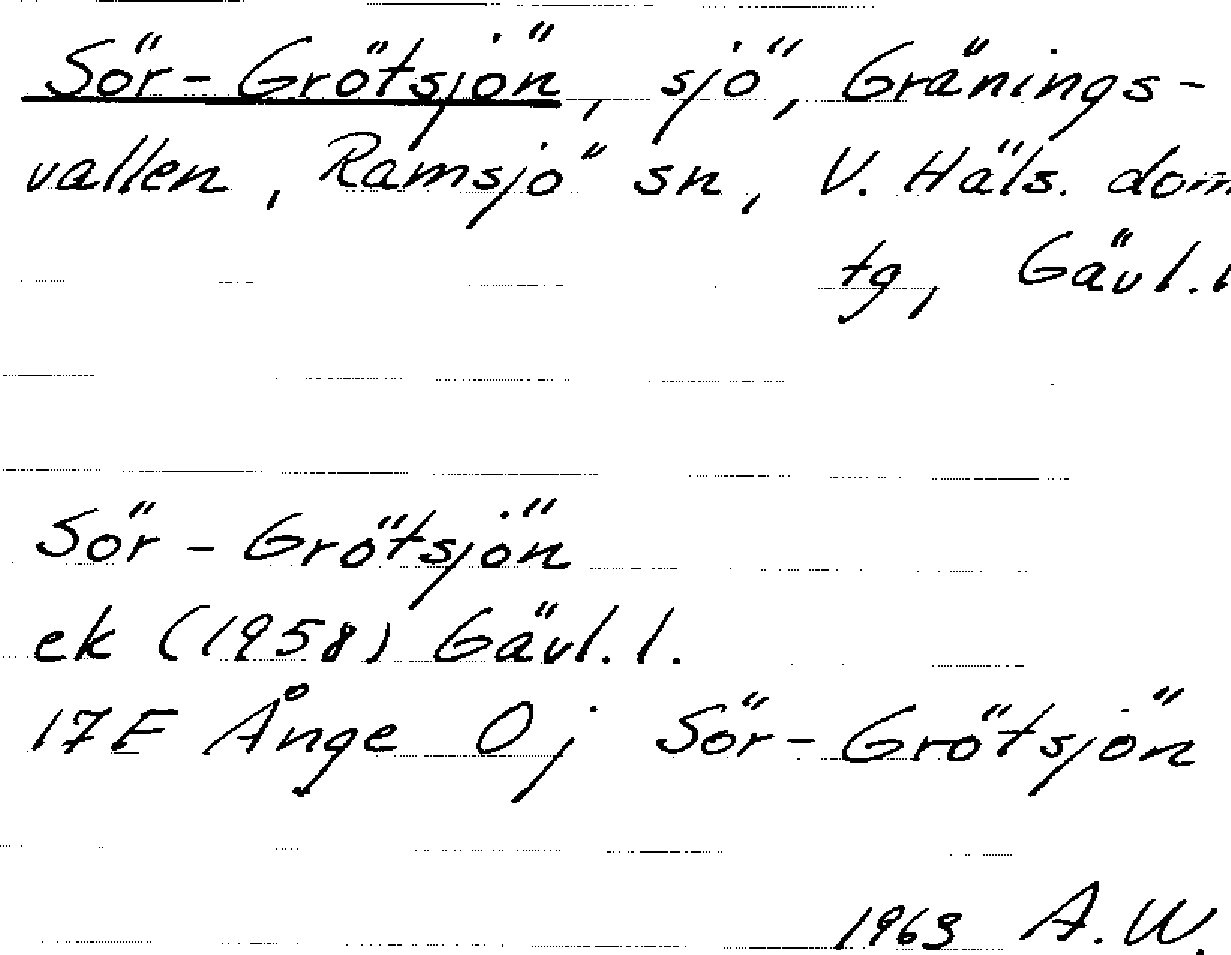 Sör-Grötsjön, sjö, Gränings-
vallen, Ramsjö sn, V. Häls. dom
tg, Gävl.l
Sör-Grötsjön
ek (1958) Gävl.l.
17E Ånge Oj Sör-Grötsjön
1963 A.W.